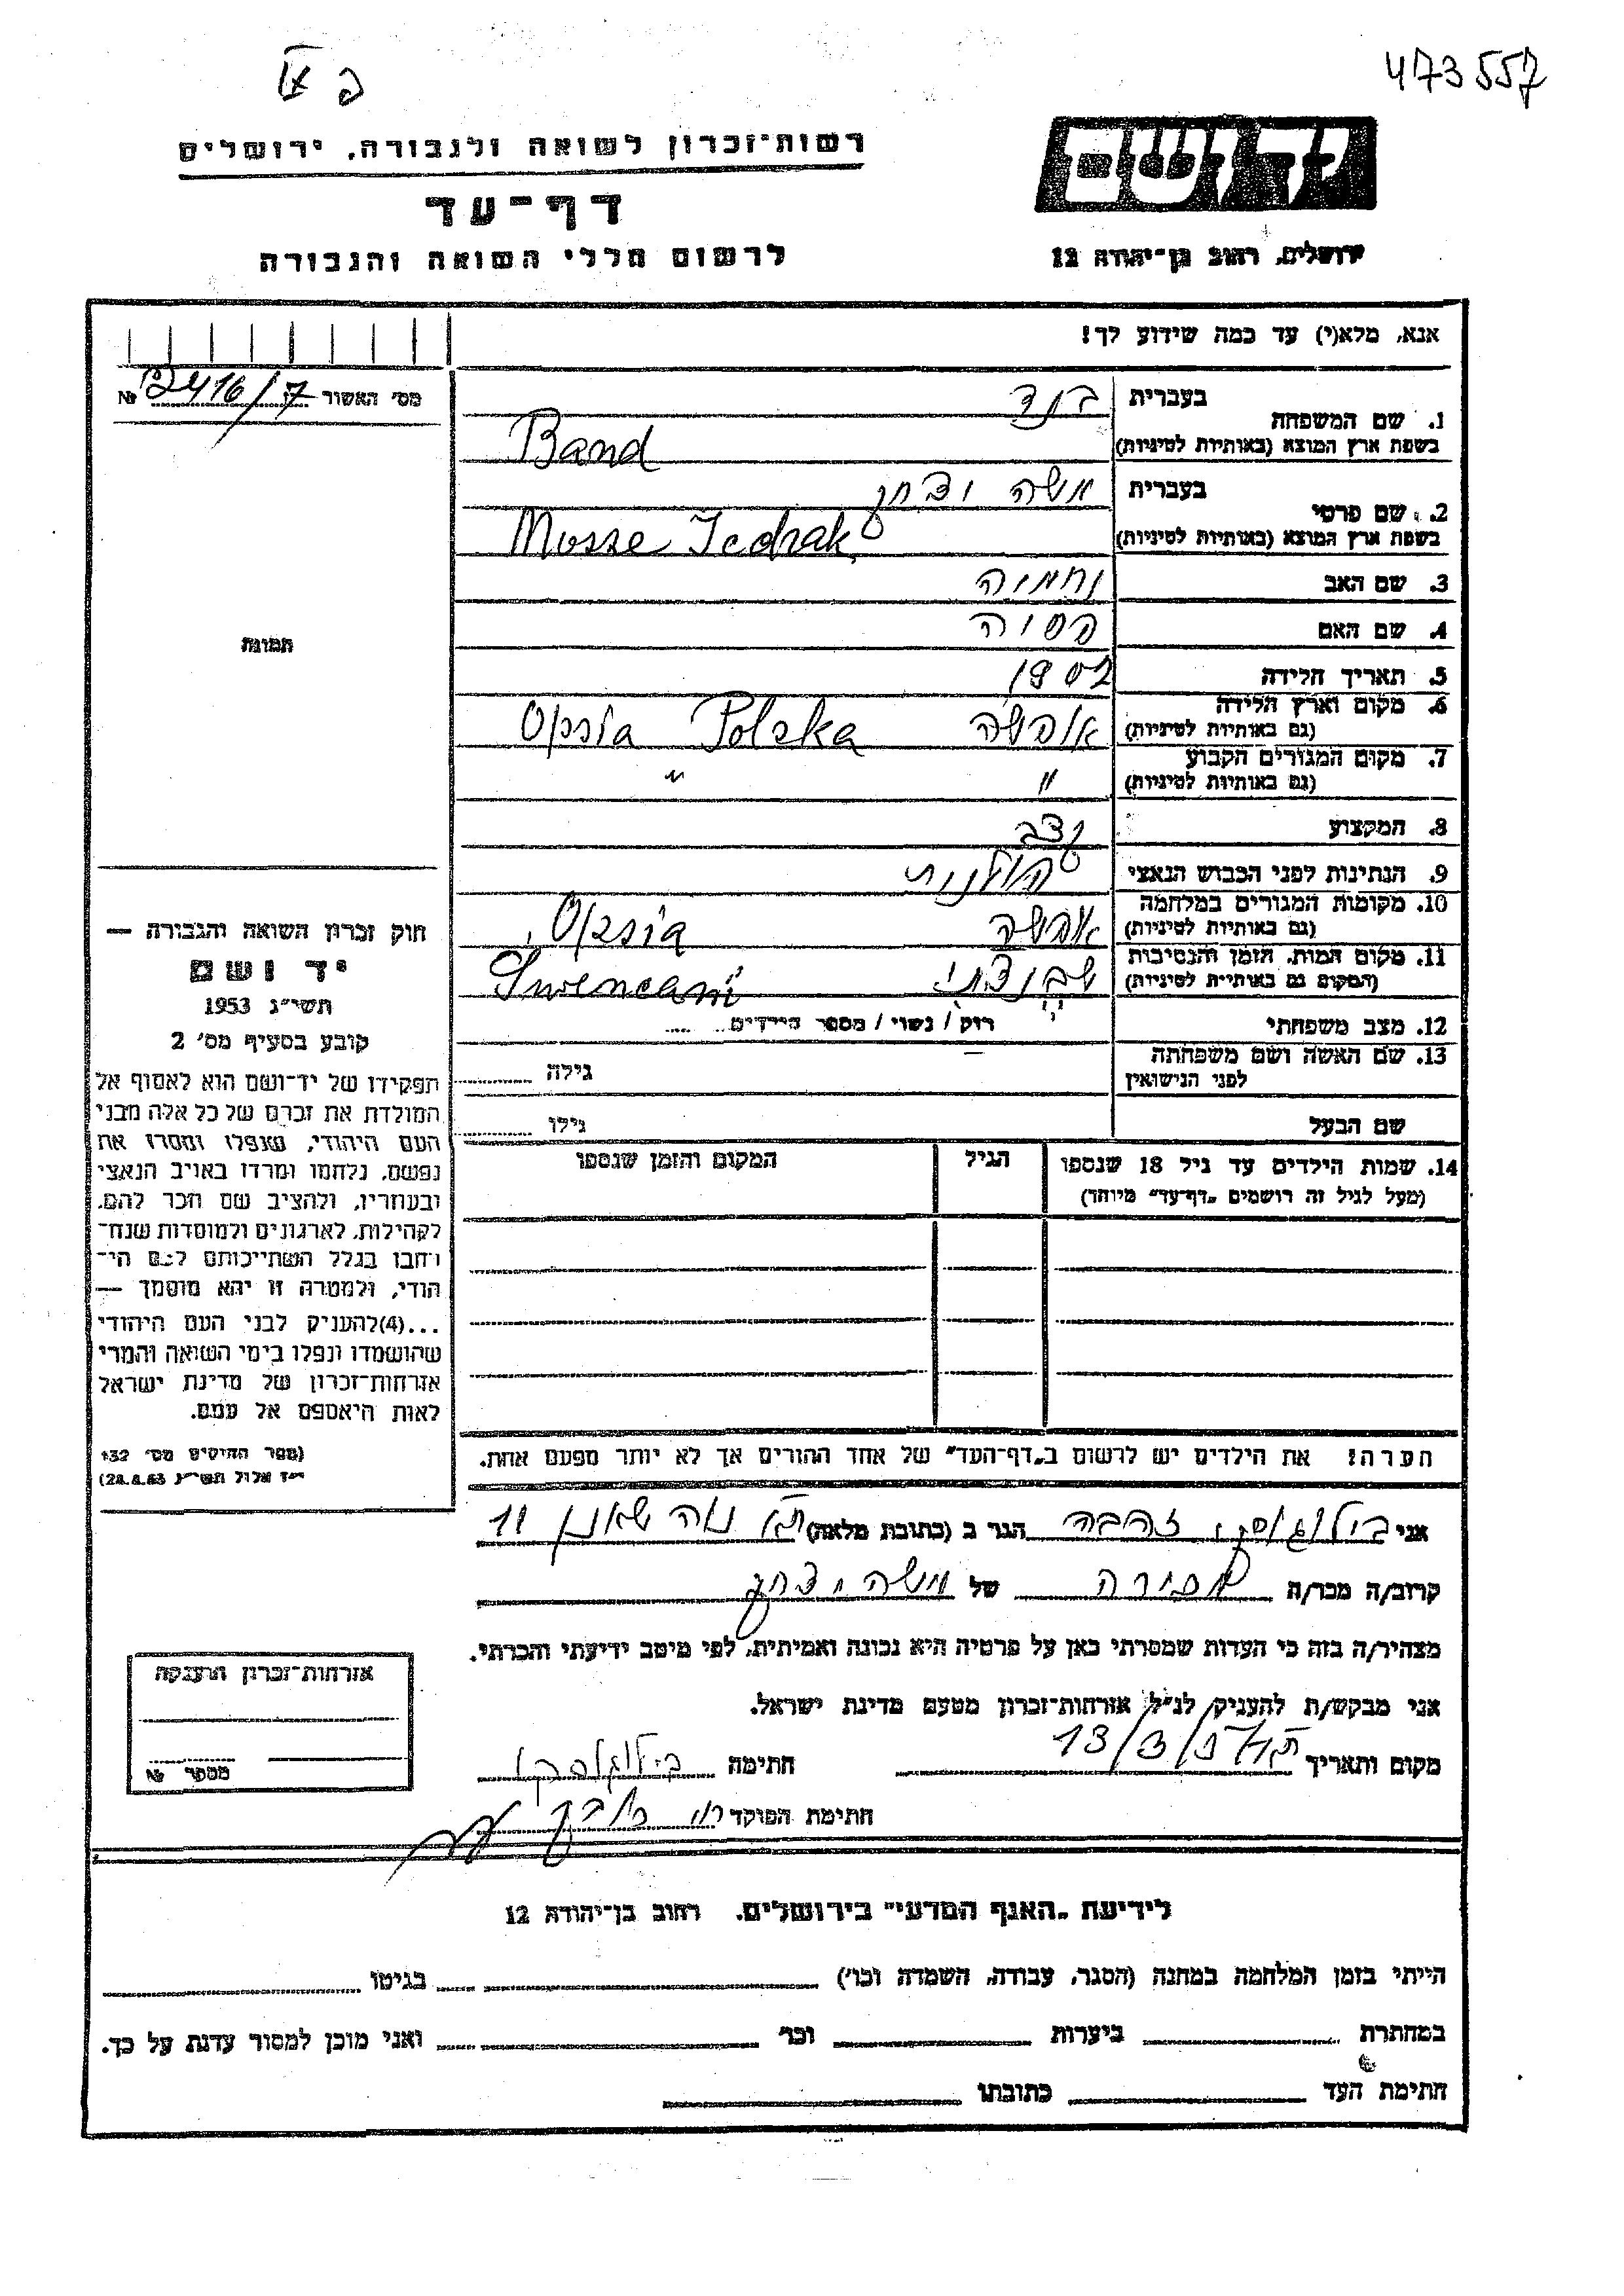 473557
רשות־זכרון לשואה ולגבורה, ירושלים
יד ושם
דף־עד
לרשום חללי השואה והגבורה
ירושלים, רחוב בן־יהודה 12
אנא, מלא(י) עד כמה שידוע לך!
מס׳ האשור 2416/7 №
1. שם המשפחה
בעברית בנד
בשפת ארץ המוצא (באותיות לטיניות) Band
2. שם פרטי
בעברית משה יצחק
בשפת ארץ המוצא (באותיות לטיניות) Mosze Icchak
3. שם האב נחמיה
4. שם האם פסיה
5. תאריך הלידה 1902
6. מקום וארץ הלידה
(גם באותיות לטיניות) אופשה Opsia Polska
7. מקום המגורים הקבוע
(גם באותיות לטיניות) " "
8. המקצוע
9. הנתינות לפני הכבוש הנאצי פולנית
10. מקומות המגורים במלחמה
(גם באותיות לטיניות) אופשה Opsia
11. מקום המות, הזמן והנסיבות
(המקום גם באותיות לטיניות) Swencani
12. מצב משפחתי רווק / נשוי / מספר הילדים
13. שם האשה ושם משפחתה
לפני הנישואין גילה
שם הבעל גילו
14. שמות הילדים עד גיל 18 שנספו
(מעל לגיל זה רושמים „דף־עד" מיוחד)
הגיל
המקום והזמן שנספו
הערה: את הילדים יש לרשום ב„דף־העד" של אחד ההורים אך לא יותר מפעם אחת.
תמונה
חוק זכרון השואה והגבורה —
יד ושם
תשי״ג 1953
קובע בסעיף מס׳ 2
תפקידו של יד־ושם הוא לאסוף אל
המולדת את זכרם של כל אלה מבני
העם היהודי, שנפלו ומסרו את
נפשם, נלחמו ומרדו באויב הנאצי
ובעוזריו, ולהציב שם וזכר להם,
לקהילות, לארגונים ולמוסדות שנח־
רחבו בגלל השתייכותם לעם הי־
הודי, ולמטרה זו יהא מוסמך —
...(4) להעניק לבני העם היהודי
שהושמדו ונפלו בימי השואה והמרי
אזרחות־זכרון של מדינת ישראל
לאות היאספם אל עמם.
(ספר החוקים מס׳ 132
י״ז אלול תשי״ג 28.8.53)
אני בילוגוסקי זהבה הגר ב (כתובת מלאה) ת״א נוה שאנן 11
קרוב/ה מכר/ה מכירה של משה יצחק
מצהיר/ה בזה כי העדות שמסרתי כאן על פרטיה היא נכונה ואמיתית, לפי מיטב ידיעתי והכרתי.
אני מבקש/ת להעניק לנ״ל אזרחות־זכרון מטעם מדינת ישראל.
מקום ותאריך 13/3/57 ת״א חתימה
חתימת הפוקד
אזרחות־זכרון הוענקה
מספר №
לידיעת „האגף המדעי" בירושלים, רחוב בן־יהודה 12
הייתי בזמן המלחמה במחנה (הסגר, עבודה, השמדה וכו׳) בגיטו
במחתרת ביערות וכו׳ ואני מוכן למסור עדות על כך.
חתימת העד כתובתו